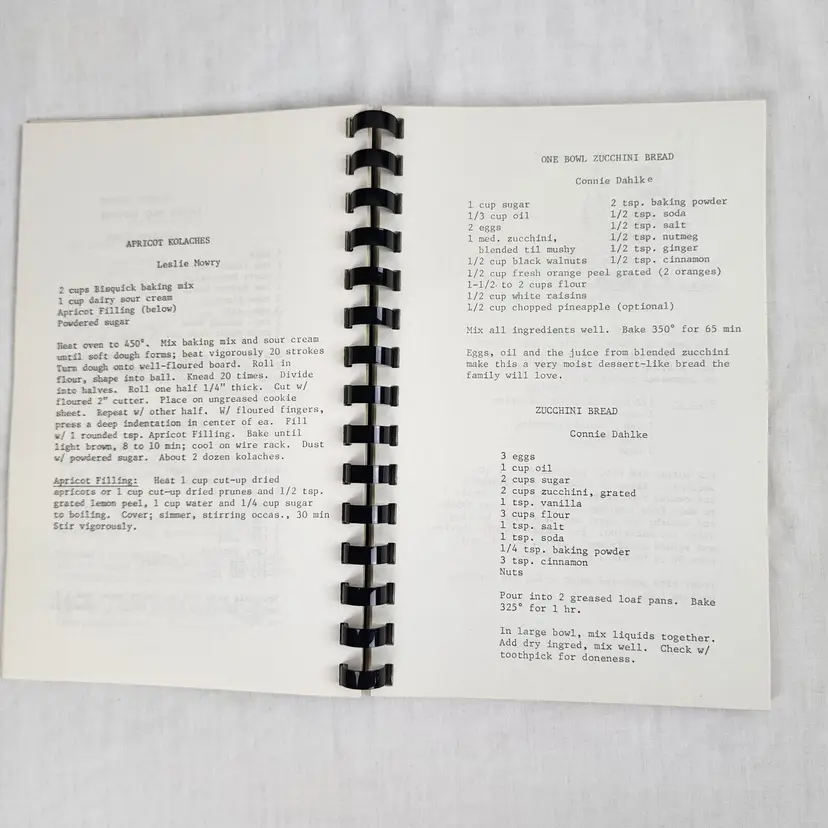 APRICOT KOLACHES
Leslie Mowry
2 cups Bisquick baking mix
1 cup dairy sour cream
Apricot Filling (below)
Powdered sugar
Heat oven to 450°. Mix baking mix and sour cream
until soft dough forms; beat vigorously 20 strokes
Turn dough onto well-floured board. Roll in
flour, shape into ball. Knead 20 times. Divide
into halves. Roll one half 1/4" thick. Cut w/
floured 2" cutter. Place on ungreased cookie
sheet. Repeat w/ other half. W/ floured fingers,
press a deep indentation in center of ea. Fill
w/ 1 rounded tsp. Apricot Filling. Bake until
light brown, 8 to 10 min; cool on wire rack. Dust
w/ powdered sugar. About 2 dozen kolaches.
Apricot Filling: Heat 1 cup cut-up dried
apricots or 1 cup cut-up dried prunes and 1/2 tsp.
grated lemon peel, 1 cup water and 1/4 cup sugar
to boiling. Cover; simmer, stirring occas., 30 min
Stir vigorously.
ONE BOWL ZUCCHINI BREAD
Connie Dahlke
1 cup sugar 2 tsp. baking powder
1/3 cup oil 1/2 tsp. soda
2 eggs 1/2 tsp. salt
1 med. zucchini, 1/2 tsp. nutmeg
blended til mushy 1/2 tsp. ginger
1/2 cup black walnuts 1/2 tsp. cinnamon
1/2 cup fresh orange peel grated (2 oranges)
1-1/2 to 2 cups flour
1/2 cup white raisins
1/2 cup chopped pineapple (optional)
Mix all ingredients well. Bake 350° for 65 min
Eggs, oil and the juice from blended zucchini
make this a very moist dessert-like bread the
family will love.
ZUCCHINI BREAD
Connie Dahlke
3 eggs
1 cup oil
2 cups sugar
2 cups zucchini, grated
1 tsp. vanilla
3 cups flour
1 tsp. salt
1 tsp. soda
1/4 tsp. baking powder
3 tsp. cinnamon
Nuts
Pour into 2 greased loaf pans. Bake
325° for 1 hr.
In large bowl, mix liquids together.
Add dry ingred, mix well. Check w/
toothpick for doneness.